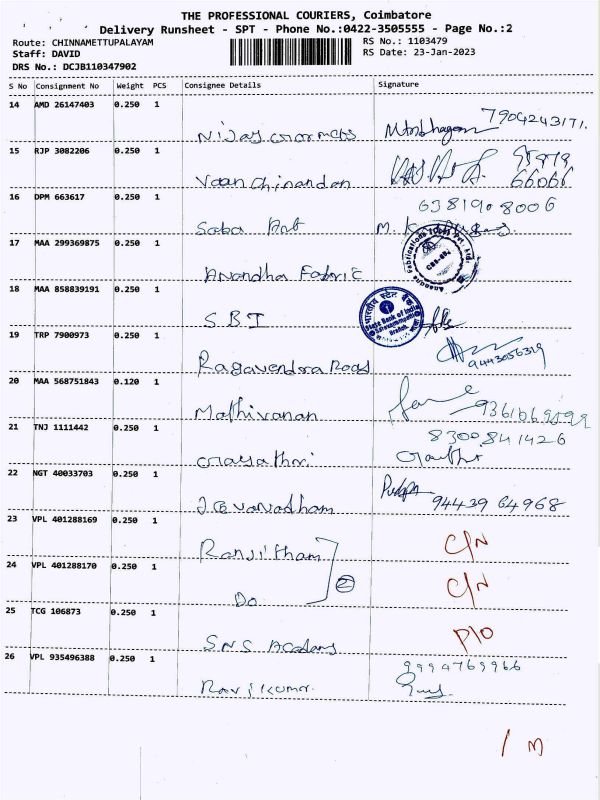 THE PROFESSIONAL COURIERS, Coimbatore
Delivery Runsheet - SPT - Phone No.:0422-3505555 - Page No.:2
Route: CHINNAMETTUPALAYAM RS No.: 1103479
Staff: DAVID RS Date: 23-Jan-2023
DRS No.: DCJB110347902
S No Consignment No Weight PCS Consignee Details Signature
14 AMD 26147403 0.250 1
7904243171.
15 RJP 3082206 0.250 1
66066
16 DPM 663617 0.250 1
6381908006
Saba M.
17 MAA 299369875 0.250 1
Anandha Fabric
18 MAA 858839191 0.250 1
भारतीय स्टेट बैंक
State Bank of India
Branch
S.B.I
19 TRP 7900973 0.250 1
Ragavendra 9443056319
20 MAA 568751843 0.120 1
Mathivanan
21 TNJ 1111442 0.250 1
8300841426
Gayathri
22 NGT 40033703 0.250 1
94439 64968
23 VPL 401288169 0.250 1
Ranjitham C/N
24 VPL 401288170 0.250 1
2
Do C/N
25 TCG 106873 0.250 1
SNS Academy P/O
26 VPL 935496388 0.250 1
9994769966
Ravikumar.